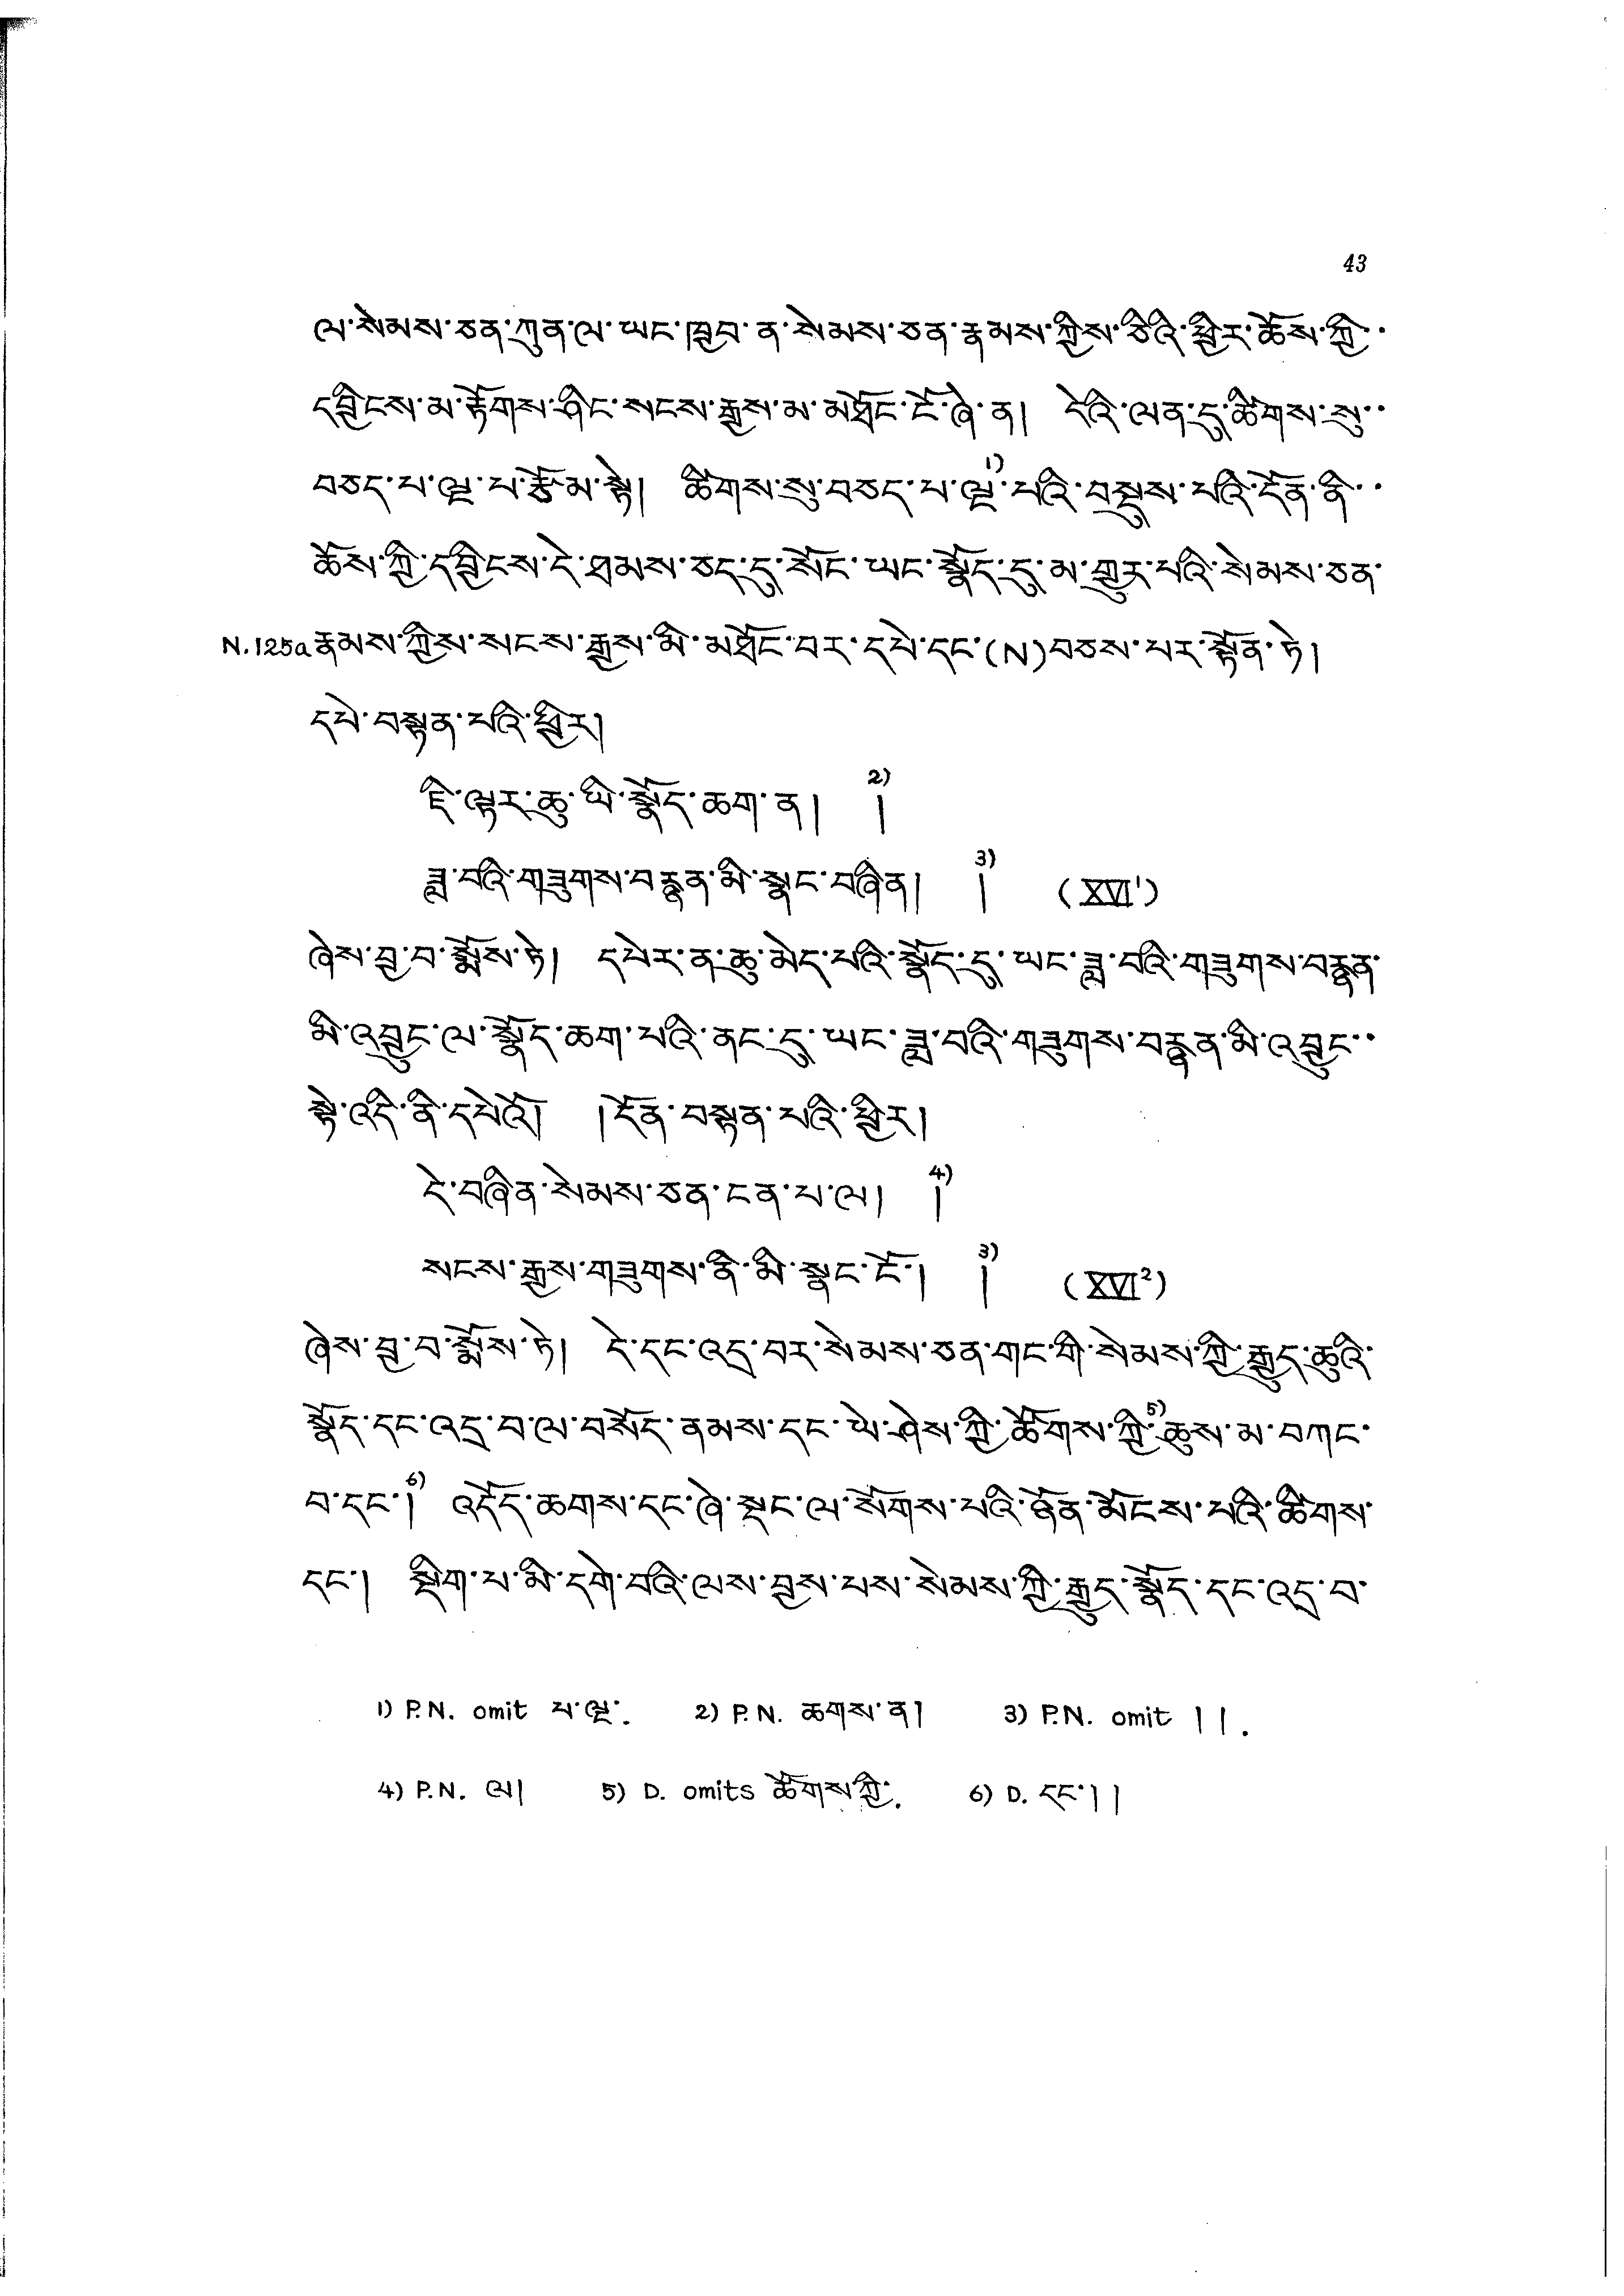 43
ལ་སེམས་ཅན་ཀུན་ལ་ཡང་ཁྱབ་ན་སེམས་ཅན་རྣམས་ཀྱིས་ཅིའི་ཕྱིར་ཆོས་ཀྱི་་
དབྱིངས་མ་རྟོགས་ཤིང་སངས་རྒྱས་མ་མཐོང་ངོ་ཞེ་ན། དེའི་ལན་དུ་ཚིགས་སུ་་
བཅད་པ་ལྔ་པ་རྩོམ་སྟེ། ཚིགས་སུ་བཅད་པ་ལྔ་1)པའི་བསྡུས་པའི་དོན་ནི་་
ཆོས་ཀྱི་དབྱིངས་དེ་ཐམས་ཅད་དུ་སོང་ཡང་སྣོད་དུ་མ་གྱུར་པའི་སེམས་ཅན་
N.125a རྣམས་ཀྱིས་སངས་རྒྱས་མི་མཐོང་བར་དཔེ་དང་(N)བཅས་པར་སྟོན་ཏེ།
དཔེ་བསྟན་པའི་ཕྱིར།
ཇི་ལྟར་ཆུ་ཡི་སྣོད་ཆག་ན། །2)
ཟླ་བའི་གཟུགས་བརྙན་མི་སྣང་བཞིན། །3) (XVI1)
ཞེས་བྱ་བ་སྨོས་ཏེ། དཔེར་ན་ཆུ་མེད་པའི་སྣོད་དུ་ཡང་ཟླ་བའི་གཟུགས་བརྙན་
མི་འབྱུང་ལ་སྣོད་ཆག་པའི་ནང་དུ་ཡང་ཟླ་བའི་གཟུགས་བརྙན་མི་འབྱུང་་
སྟེ་འདི་ནི་དཔེའོ། །དོན་བསྟན་པའི་ཕྱིར།
དེ་བཞིན་སེམས་ཅན་ངན་པ་ལ། །4)
སངས་རྒྱས་གཟུགས་ནི་མི་སྣང་ངོ་། །3) (XVI2)
ཞེས་བྱ་བ་སྨོས་ཏེ། དེ་དང་འདྲ་བར་སེམས་ཅན་གང་གི་སེམས་ཀྱི་རྒྱུད་ཆུའི་
སྣོད་དང་འདྲ་བ་ལ་བསོད་ནམས་དང་ཡེ་ཤེས་ཀྱི་ཚོགས་ཀྱི་5)ཆུས་མ་བཀང་
བ་དང་།6) འདོད་ཆགས་དང་ཞེ་སྡང་ལ་སོགས་པའི་ཉོན་མོངས་པའི་ཚིགས་
དང་། སྡིག་པ་མི་དགེ་བའི་ལས་བྱས་པས་སེམས་ཀྱི་རྒྱུད་སྣོད་དང་འདྲ་བ་
1) P.N. omit པ་ལྔ་. 2) P.N. ཆགས་ན། 3) P.N. omit ། །.
4) P.N. ལ། 5) D. omits ཚོགས་ཀྱི་. 6) D. དང་། །